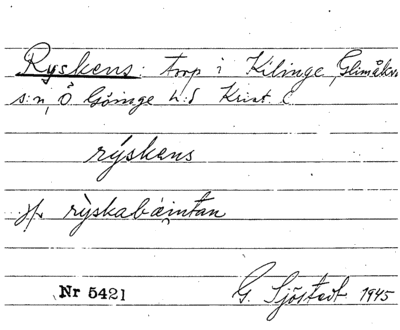 Ryskens: torp i Kilinge, Glimåkra
s:n, Ö Göinge h:d Krist. l
rýskens
jfr rỳskabáintan
Nr 5421
G. Sjöstedt 1945